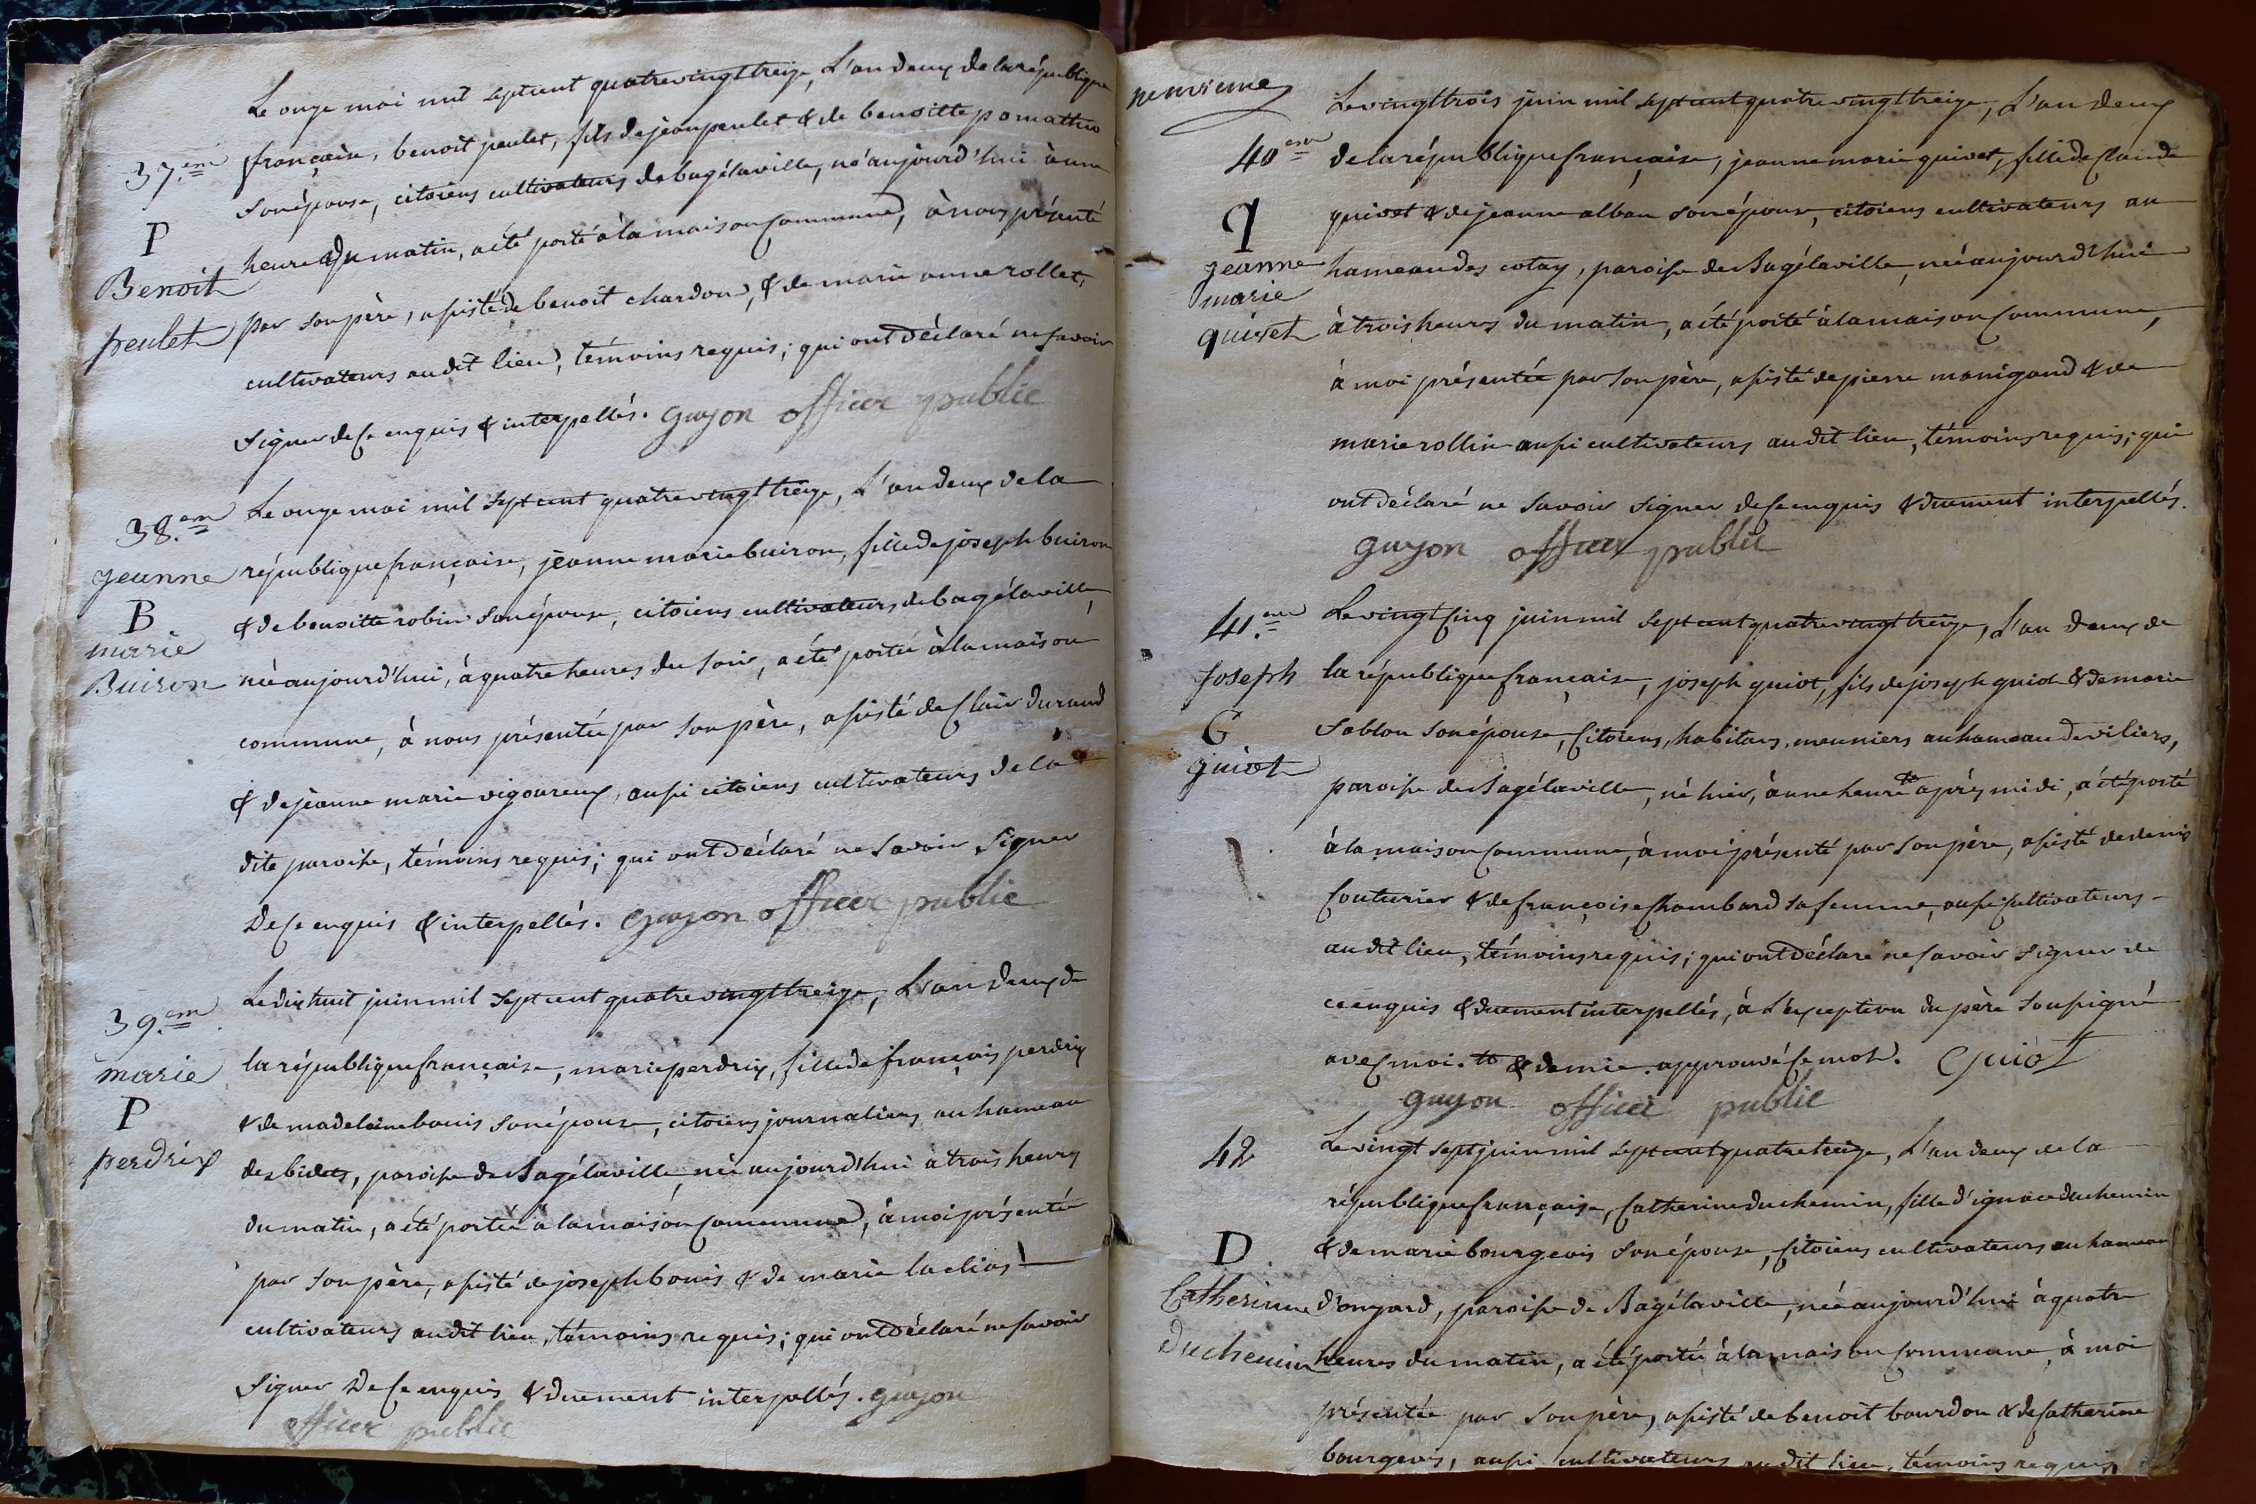 Le onze mai mil septcent quatrevingttreize, L'an deux de la république
37.em
française, benoit peulet, fils de jean peulet & de benoitte pomathio
son épouse, citoiens cultivateurs de bagélaville, né aujourd'hui à une
P
heure du matin, a été porté à la maison commune, à nous présenté
Benoit
peulet
par son père, assisté de benoit chardon, & de marie anne rollet,
cultivateurs au dit lieu, témoins requis; qui ont déclaré ne savoir
signer de ce enquis & interpellés. guyon officier public
38.em
Le onze mai mil septcent quatrevingttreize, L'an deux de la
Jeanne
république française, jeanne marie buiron, fille de joseph buiron
B
& de benoitte robin son épouse, citoiens cultivateurs de bagélaville,
marie
Buiron
née aujourd'hui, à quatre heures du soir, a été portée à la maison
commune, à nous présentée par son père, assisté de Clair durand
& de jeanne marie vigoureux, aussi citoiens cultivateurs de la
dite paroisse, témoins requis; qui ont déclaré ne savoir signer
de ce enquis & interpellés. guyon officier public
39.em
Le dix huit juin mil septcent quatrevingttreize, L'an deux de
marie
la république française, marie perdrix, fille de françois perdrix
P
& de madelaine bouis son épouse, citoiens journaliers au hameau
perdrix
des bidets, paroisse de Bagélaville, née aujourd'hui à trois heures
du matin, a été portée à la maison commune, à moi présentée
par son père, assisté de joseph bouis & de marie
cultivateurs au dit lieu, témoins requis; qui ont déclaré ne savoir
signer de ce enquis & duement interpellés. guyon
officier public
neuvieme
Le vingttrois juin mil septcent quatrevingttreize, L'an deux
40em
de la république française, jeanne marie quivet, fille de Claude
q
quivet & de jeanne alban son épouse, citoiens cultivateurs au
jeanne
hameau des cotay, paroisse de Bagélaville, née aujourd'hui
marie
quivet
à trois heures du matin, a été porté à la maison commune,
à moi présentée par son père, assisté de pierre manigand & de
marie rollin aussi cultivateurs au dit lieu, témoins requis; qui
ont déclaré ne savoir signer de ce enquis & duement interpellés.
guyon officier public
41.em
Le vingt Cinq juin mil septcent quatrevingttreize, L'an deux de
Joseph
la république française, joseph guiot, fils de joseph guiot & de marie
G
sablon son épouse, Citoiens, habitans, meuniers au hameau de viliers,
guiot
paroisse de Bagélaville, né hier, à une heure après midi, a été porté
à la maison commune, à moi présenté par son père, assisté de denis
Couturier & de françoise Chambard sa femme, aussi cultivateurs
au dit lieu, témoins requis; qui ont déclaré ne savoir signer de
ce enquis & duement interpellés, à L'exception du père soussigné
avec moi. & demie. approuvé ce mot. Guiot
guyon officier public
42
Le vingt sept juin mil septcent quatretreize, L'an deux de la
république française, Catherine duchemin, fille d'ignace duchemin
D
& de marie bourgeois son épouse, Citoiens cultivateurs au hameau
Catherine
d'onzard, paroisse de Bagélaville, née aujourd'hui à quatre
Duchemin
heures du matin, a été portée à la maison commune, à moi
présentée par son père, assisté de benoit bourdon & de Catherine
bourgeois, aussi cultivateurs au dit lieu, témoins requis